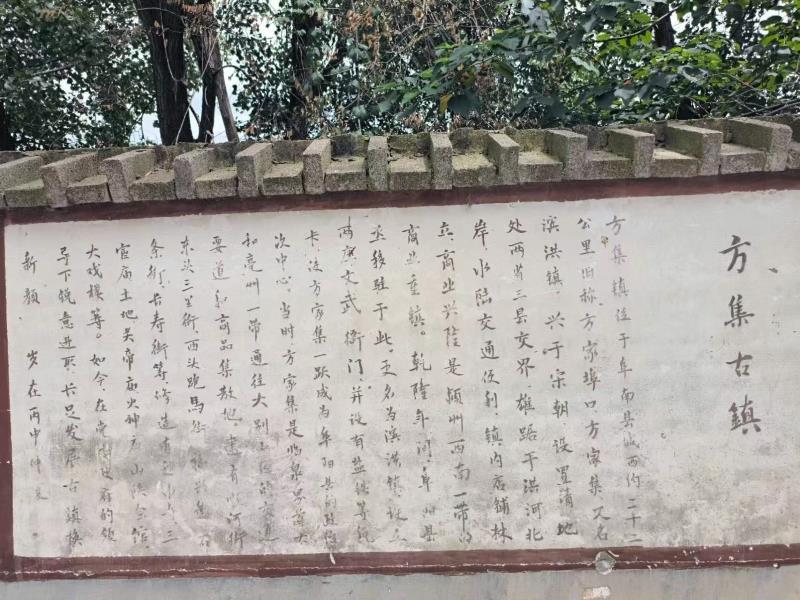 方集古鎮
方集镇位于阜南县城西约二十二
公里旧称方家埠口方家集又名
滨洪镇，兴于宋朝，设置清地
处两省三县交界，雄踞于洪河北
岸，水陆交通便利，镇内店铺林
立，商业兴隆是颍州西南一带的
商业重镇。乾隆年间阜阳县
丞移驻于此，更名为滨洪镇，设
两廒文武衙门，并设有盐
卡，后方家集一跃成为阜阳县的政
次中心，当时方家集是临泉界首大
和亳州一带通往大别山的交通
要道和商品集散地，建有顺河街
东头三星街西头跑马
条街，长寿街等，修造有三
官庙土地关帝庙火神山陕会馆
大戏楼等。如今，在党的政府的领
导下锐意进取，长足发展古镇换
新颜
岁在丙申仲夏